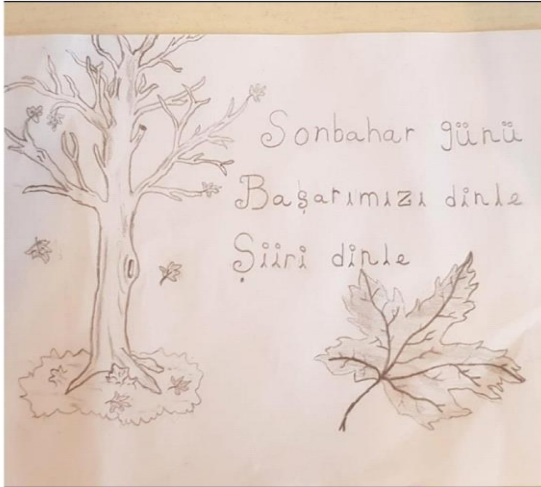 Sonbahar günü
Başarımızı dinle
Şiiri dinle